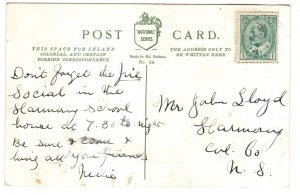 POST CARD.
"NATIONAL" SERIES
THIS SPACE FOR INLAND COLONIAL, AND CERTAIN FOREIGN CORRESPONDENCE
Made in Gt. Britain.
THE ADDRESS ONLY TO BE WRITTEN HERE.
Dont forget the pie
Social in the
Harmony School
house at 7.30 to night
Be sure & come &
bring all your friends
Nellie
Mr John Lloyd
Harmony
Col. Co
N. S.